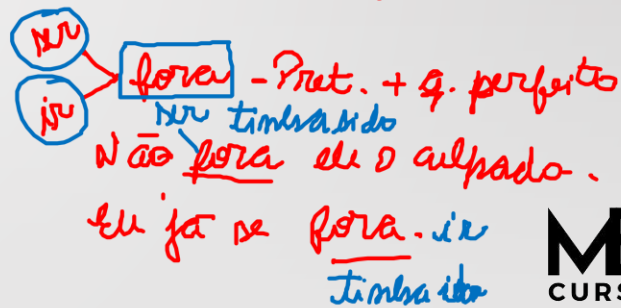 ser
ir
fora - Pret. + q. perfeito
ser tinha sido
Não fora ele o culpado.
Eu já se fora. ir
tinha ido
M
CURS